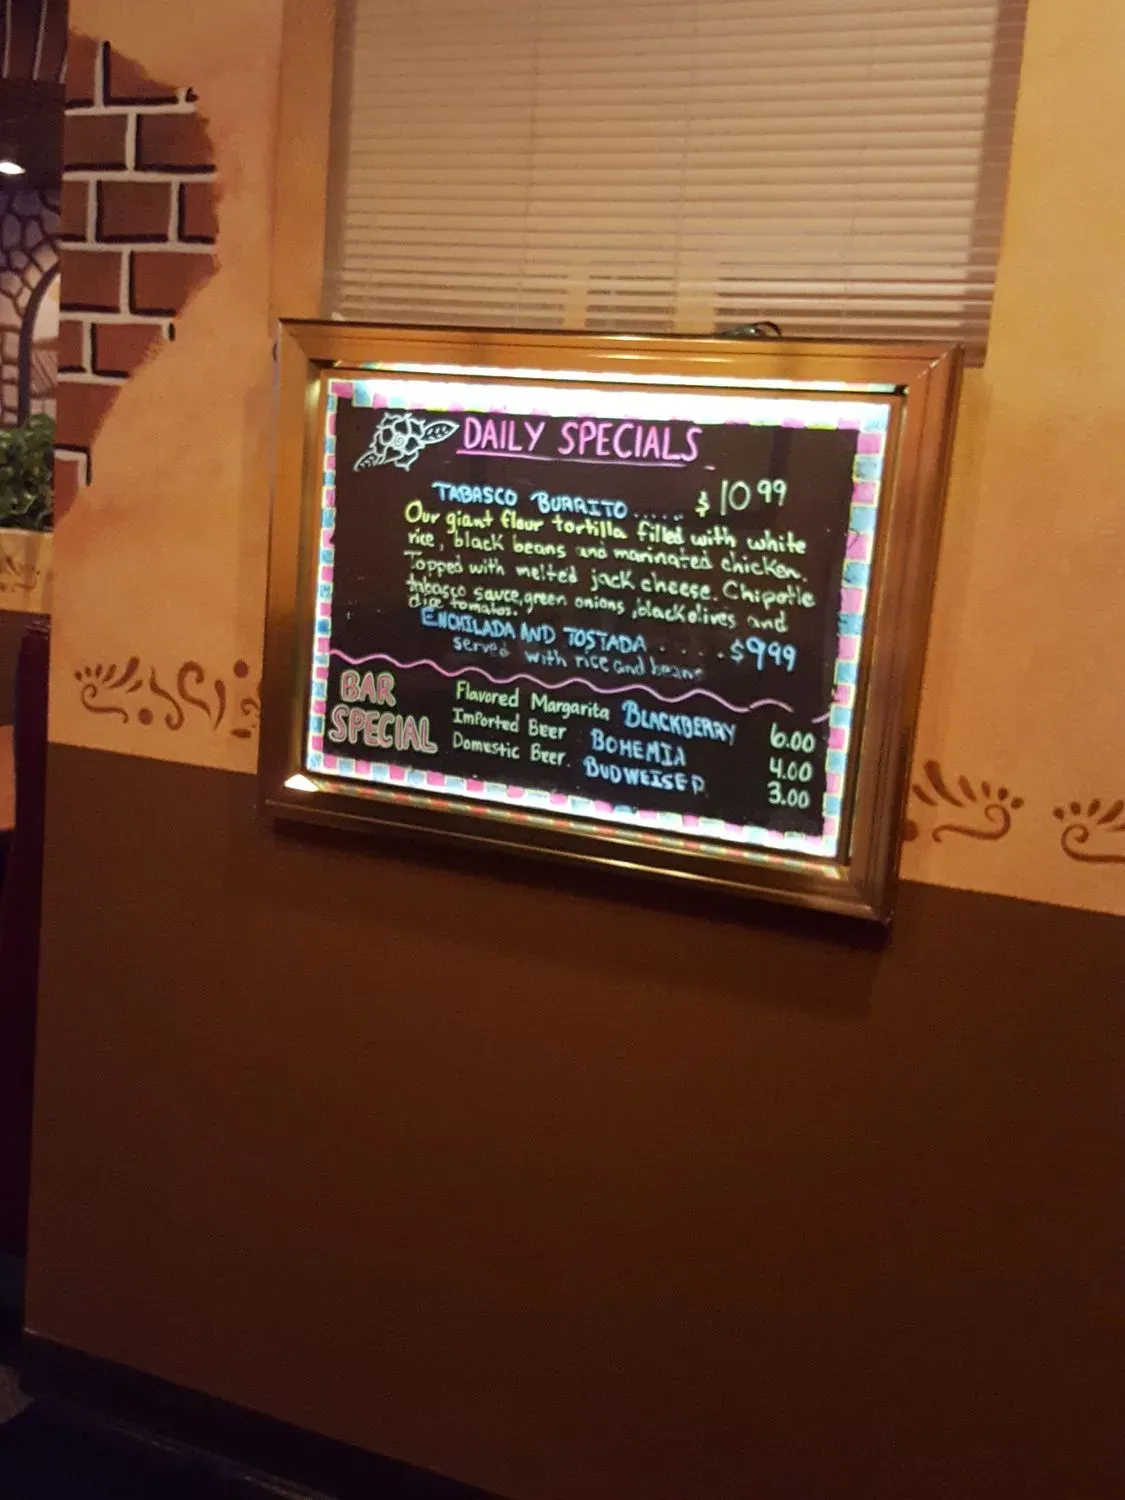 DAILY SPECIALS
TABASCO BURRITO..... $10.99
Our giant flour tortilla filled with white
rice, black beans and marinated chicken.
Topped with melted jack cheese. Chipotle
tabasco sauce, green onions, black olives and
dice tomatos.
ENCHILADA AND TOSTADA . . . . $9.99
served with rice and beans
BAR
SPECIAL
Flavored Margarita BLACKBERRY 6.00
Imported Beer BOHEMIA 4.00
Domestic Beer. BUDWEISER 3.00